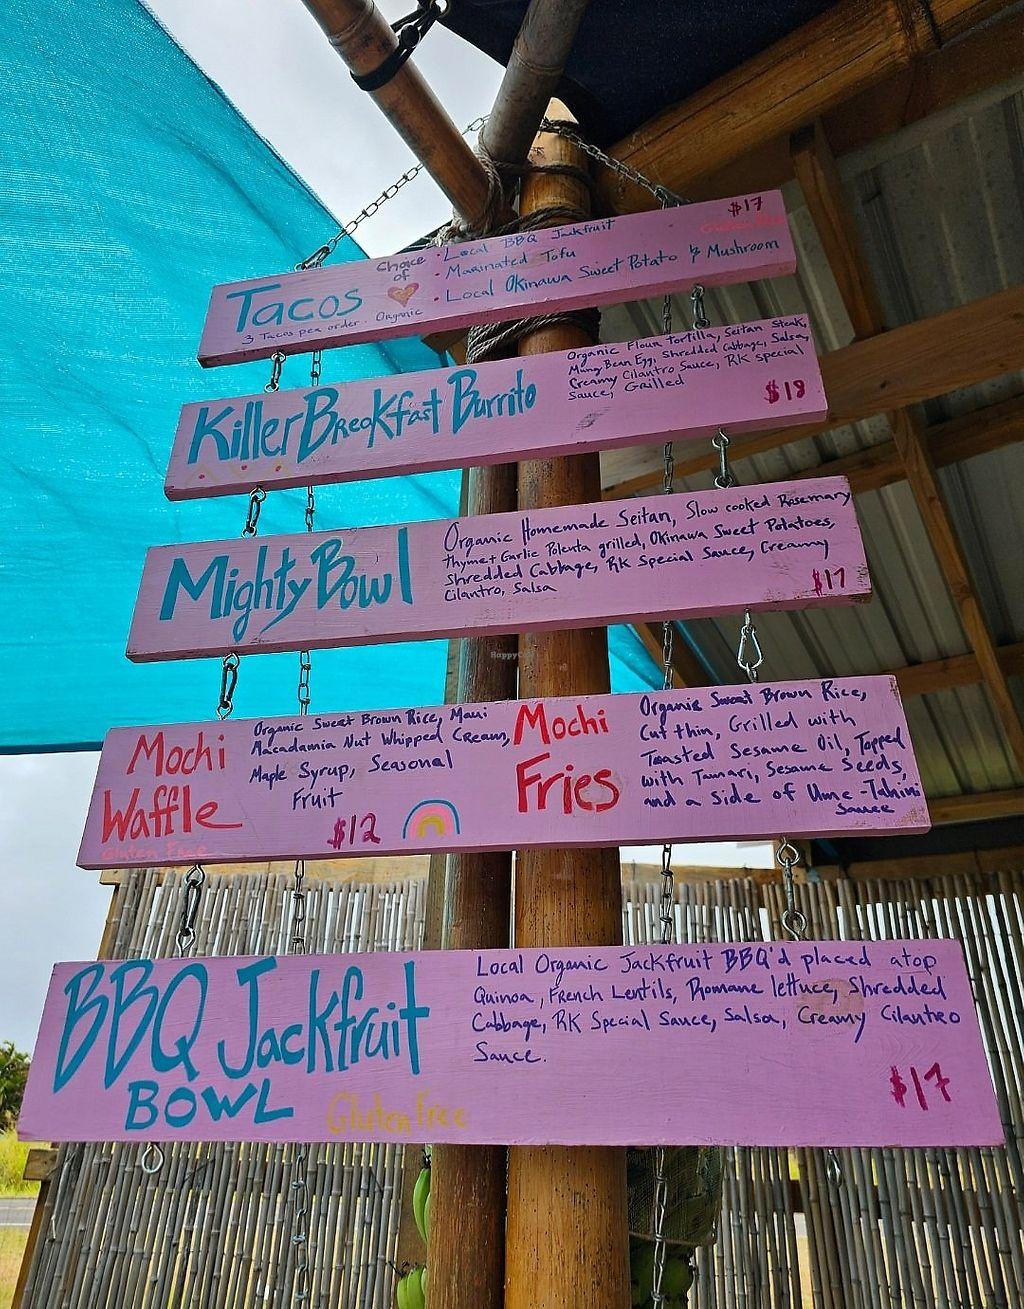 Tacos
3 Tacos per order. Organic
Choice
of
• Local BBQ Jackfruit
• Marinated Tofu
• Local Okinawa Sweet Potato & Mushroom
$17
Gluten Free
Killer Breakfast Burrito
Organic Flour Tortilla, Seitan Steak,
Mung Bean Egg, Shredded Cabbage, Salsa,
Creamy Cilantro Sauce, RK special
Sauce, Grilled
$18
Mighty Bowl
Organic Homemade Seitan, Slow cooked Rosemary
Thyme + Garlic Polenta grilled, Okinawa Sweet Potatoes,
Shredded Cabbage, RK Special Sauce, Creamy
Cilantro, Salsa
$17
HappyCow
Mochi
Waffle
Gluten Free
Organic Sweet Brown Rice, Maui
Macadamia Nut Whipped Cream,
Maple Syrup, Seasonal
Fruit
$12
Mochi
Fries
Organic Sweet Brown Rice,
Cut thin, Grilled with
Toasted Sesame Oil, Topped
with Tamari, Sesame Seeds,
and a side of Ume-Tahini
Sauce
BBQ Jackfruit
BOWL
Gluten free
Local Organic Jackfruit BBQ'd placed atop
Quinoa, French Lentils, Romane lettuce, Shredded
Cabbage, RK Special Sauce, Salsa, Creamy Cilantro
Sauce.
$17